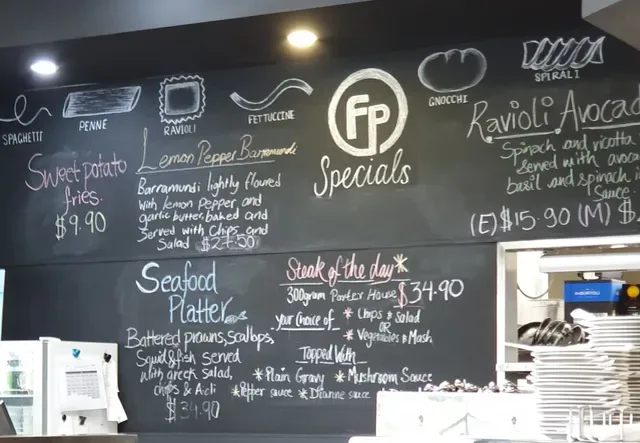 SPAGHETTI
PENNE
RAVIOLI
FETTUCCINE
GNOCCHI
SPIRALI
FP
Specials
Sweet potato
fries.
$9.90
Lemon Pepper Barramundi
Barramundi lightly floured
with lemon Pepper and
garlic butter, baked and
Served with chips and
Salad $27.50
Ravioli Avocad
Spinach and ricotta
Served with avoca
basil and spinach i
Sauce
(E) $15.90 (M) $
Seafood
Platter
Battered prawns, Scallops,
Squid & fish served
with greek salad,
chips & Aioli
$34.90
Steak of the day*
300gram Porter House $34.90
your choice of * Chips & Salad
OR
* Vegetables & Mash
Topped With
* Plain Gravy * Mushroom Sauce
* Pepper sauce * Dianne sauce